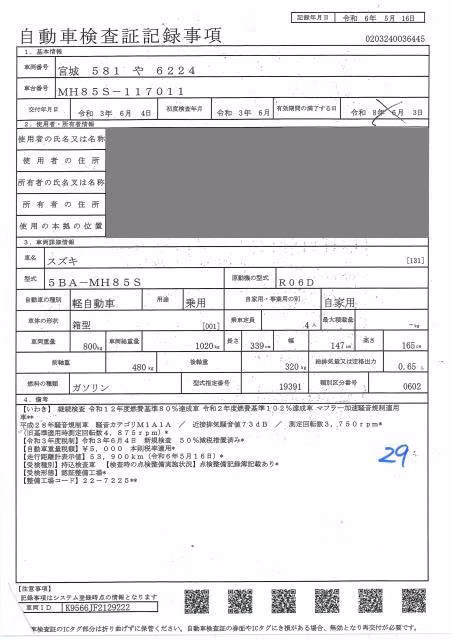 記録年月日 令和 6年 5月 16日
自動車検査証記録事項 0203240036445
1. 基本情報
車両番号 宮城 581 や 6224
車台番号 MH85S-117011
交付年月日 令和 3年 6月 4日 初度検査年月 令和 3年 6月 有効期間の満了する日 令和 8年 6月 3日
2. 使用者・所有者情報
使用者の氏名又は名称
使用者の住所
所有者の氏名又は名称
所有者の住所
使用の本拠の位置
3. 車両詳細情報
車名 スズキ [131]
型式 5BA-MH85S 原動機の型式 R06D
自動車の種別 軽自動車 用途 乗用 自家用・事業用の別 自家用
車体の形状 箱型 [001] 乗車定員 4人 最大積載量 -kg
車両重量 800kg 車両総重量 1020kg 長さ 339cm 幅 147cm 高さ 165cm
前軸重 480kg 後軸重 320kg 総排気量又は定格出力 0.65 L
燃料の種類 ガソリン 型式指定番号 19391 類別区分番号 0602
4. 備考
【いわき】 継続検査 令和12年度燃費基準80%達成車 令和2年度燃費基準102%達成車 マフラー加速騒音規制適用
車**
平成28年騒音規制車 騒音カテゴリM1A1A / 近接排気騒音値73dB / 測定回転数3,750rpm*
(旧基準適用時測定回転数4,875rpm)*
【令和3年度税制】令和3年6月4日 新規検査 50%減税措置済み*
【自動車重量税額】¥5,000 本則税率適用*
【走行距離計表示値】53,900km(令和6年5月16日)*
【受検種別】持込検査車 【検査時の点検整備実施状況】点検整備記録簿記載あり*
【受検形態】認証整備工場*
【整備工場コード】22-7225**
29
【注意事項】
記録事項はシステム登録時点の情報となります
車両ID K9566JF2129222
車検査証のICタグ部分は折り曲げずに保管ください。自動車検査証の券面やICタグにき損がある場合、無効となり再交付が必要です。